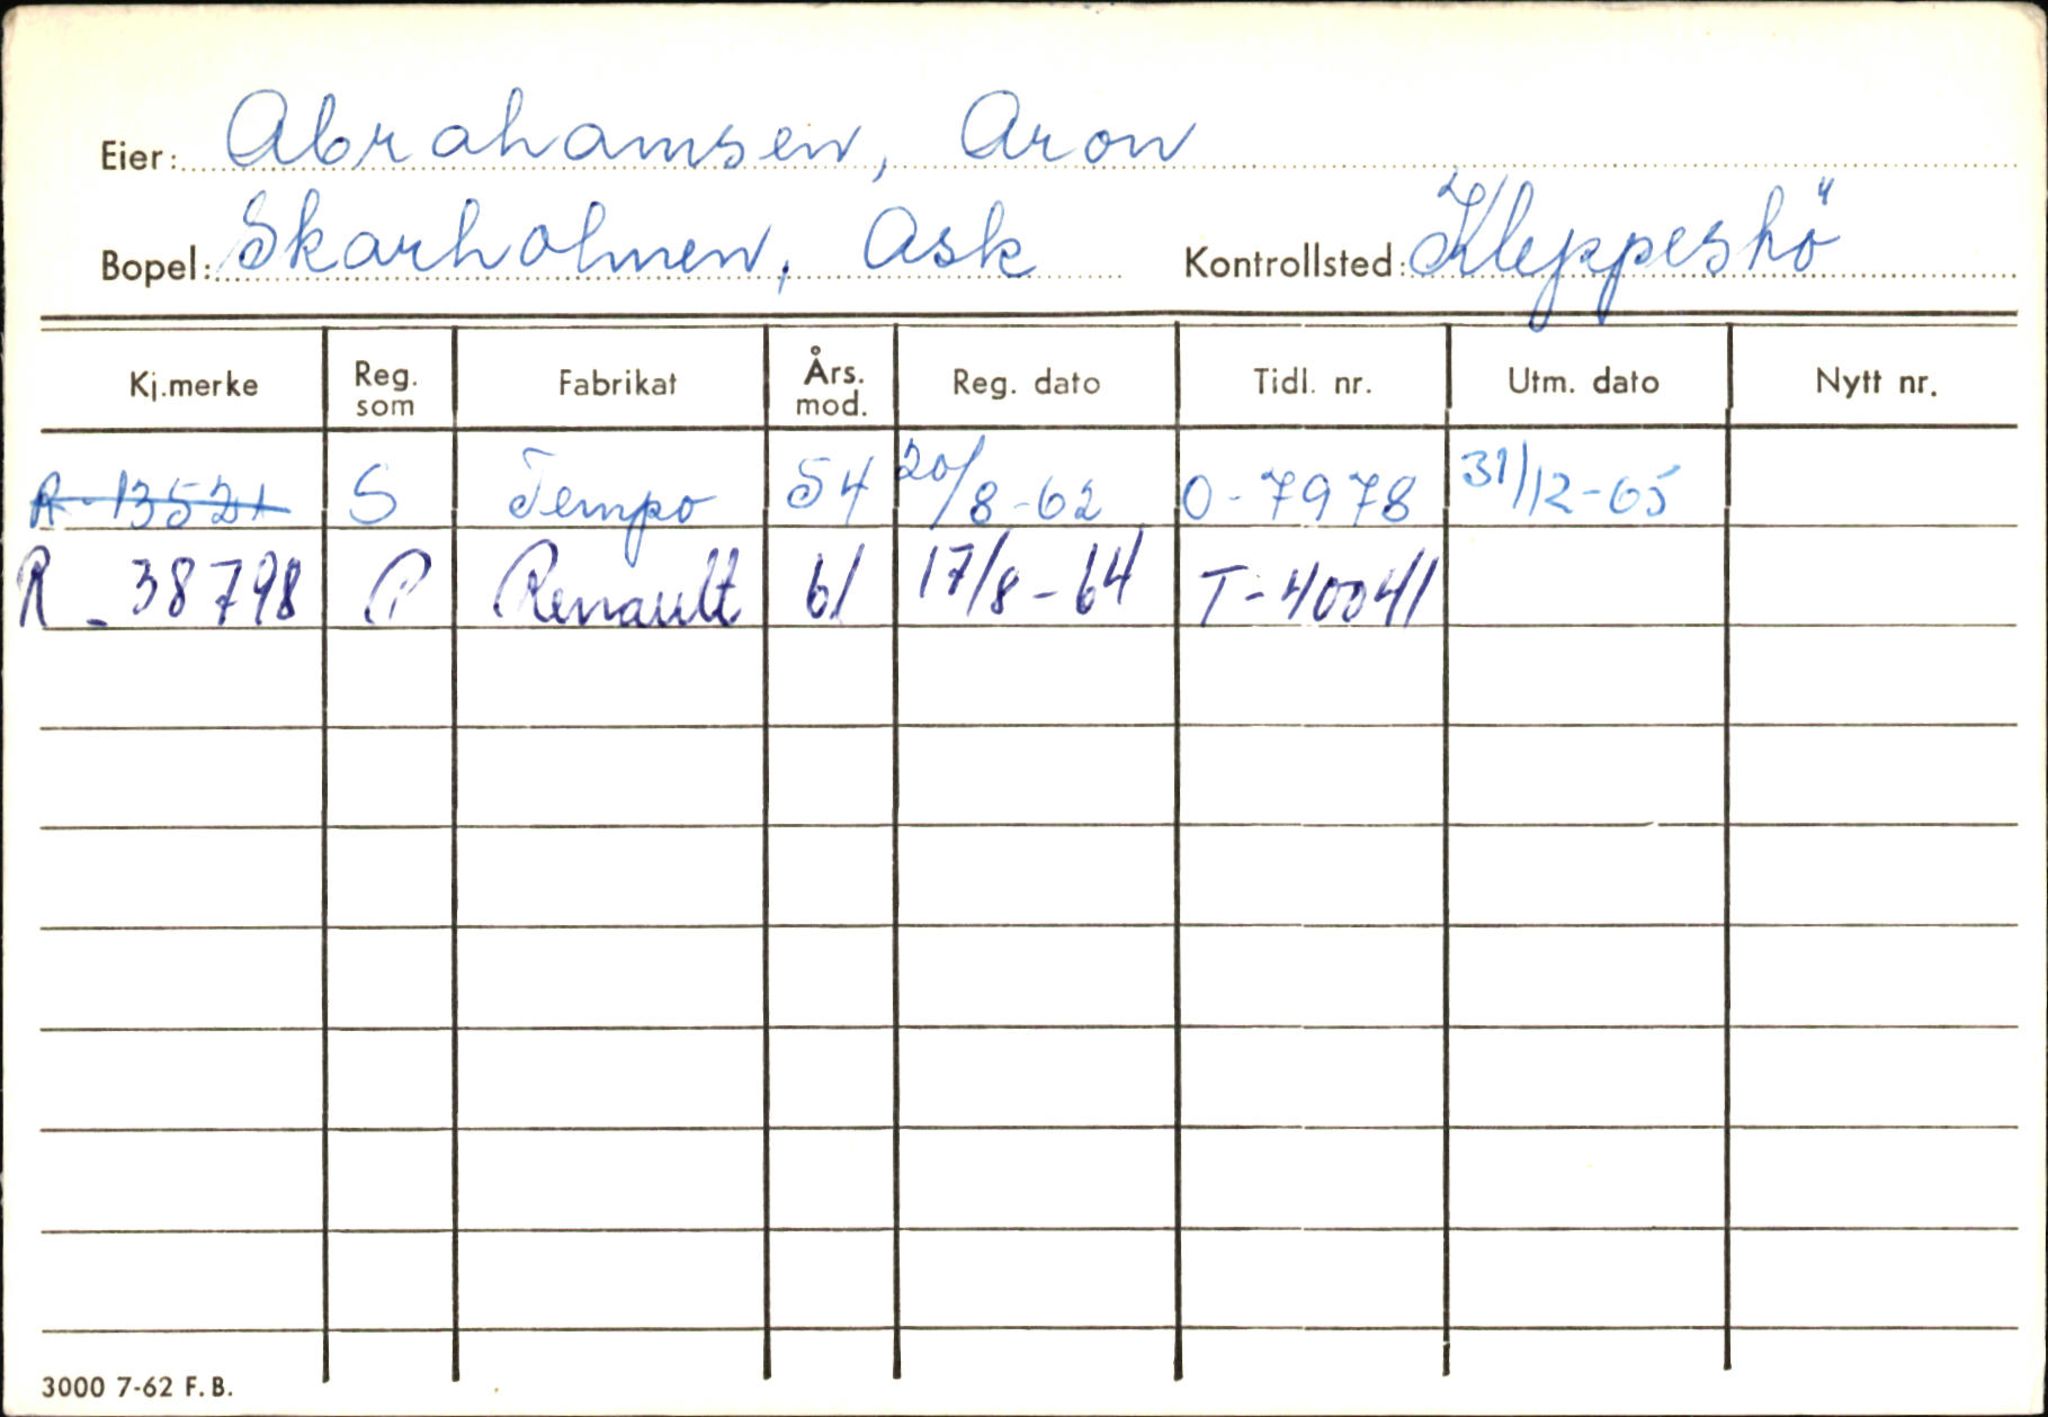 Eier: Abrahamsen, Aron
Bopel: Skarholmen, Ask Kontrollsted: Kleppeshö
Kj.merke Reg. som Fabrikat Års. mod. Reg. dato Tidl. nr. Utm. dato Nytt nr.
R-13521 S Tempo 54 20/8-62 O-7978 31/12-65
R-38798 P Renault 61 17/8-64 T-40041
3000 7-62 F.B.